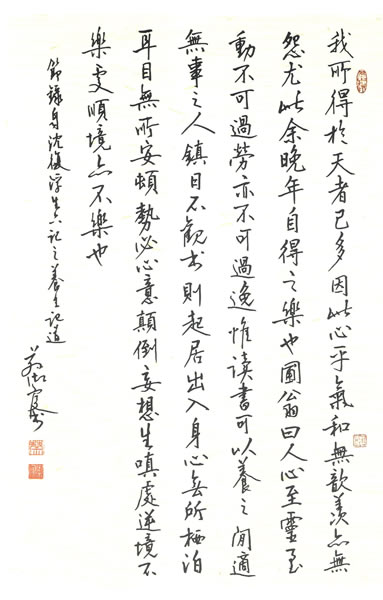 我所得於天者已多因此心平氣和無歆羨亦無
怨尤此余晚年自得之樂也圃翁曰人心至靈至
動不可過勞亦不可過逸惟读書可以養之閒適
無事之人鎮日不觀书則起居出入身心無所栖泊
耳目無所安頓勢必心意顛倒妄想生嗔處逆境不
樂處順境亦不樂也
節錄自沈復浮生六記之養生記逍